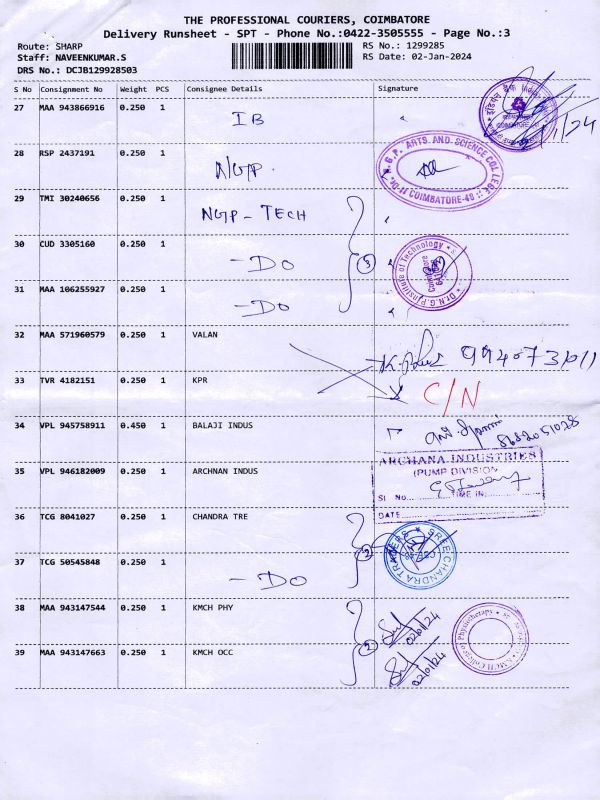 THE PROFESSIONAL COURIERS, COIMBATORE
Delivery Runsheet - SPT - Phone No.:0422-3505555 - Page No.:3
Route: SHARP
RS No.: 1299285
Staff: NAVEENKUMAR.S
RS Date: 02-Jan-2024
DRS No.: DCJB129928503
S No Consignment No Weight PCS Consignee Details Signature
27 MAA 943866916 0.250 1 IB
28 RSP 2437191 0.250 1 NGP
Dr. N.G.P. ARTS AND SCIENCE COLLEGE
COIMBATORE-48
29 TMI 30240656 0.250 1 NGP-TECH
30 CUD 3305160 0.250 1 -DO
3
Dr.N.G.P.Institute of Technology
Coimbatore
31 MAA 106255927 0.250 1 -DO
32 MAA 571960579 0.250 1 VALAN
33 TVR 4182151 0.250 1 KPR
C/N
34 VPL 945758911 0.450 1 BALAJI INDUS
8682051028
35 VPL 946182009 0.250 1 ARCHNAN INDUS
ARCHANA INDUSTRIES
(PUMP DIVISION
Sl No. TIME IN
DATE
36 TCG 8041027 0.250 1 CHANDRA TRE
2
SREE CHANDRA TRADERS
37 TCG 50545848 0.250 1 -DO
38 MAA 943147544 0.250 1 KMCH PHY
02/01/24
2
KMCH College of Physiotherapy
39 MAA 943147663 0.250 1 KMCH OCC
02/01/24